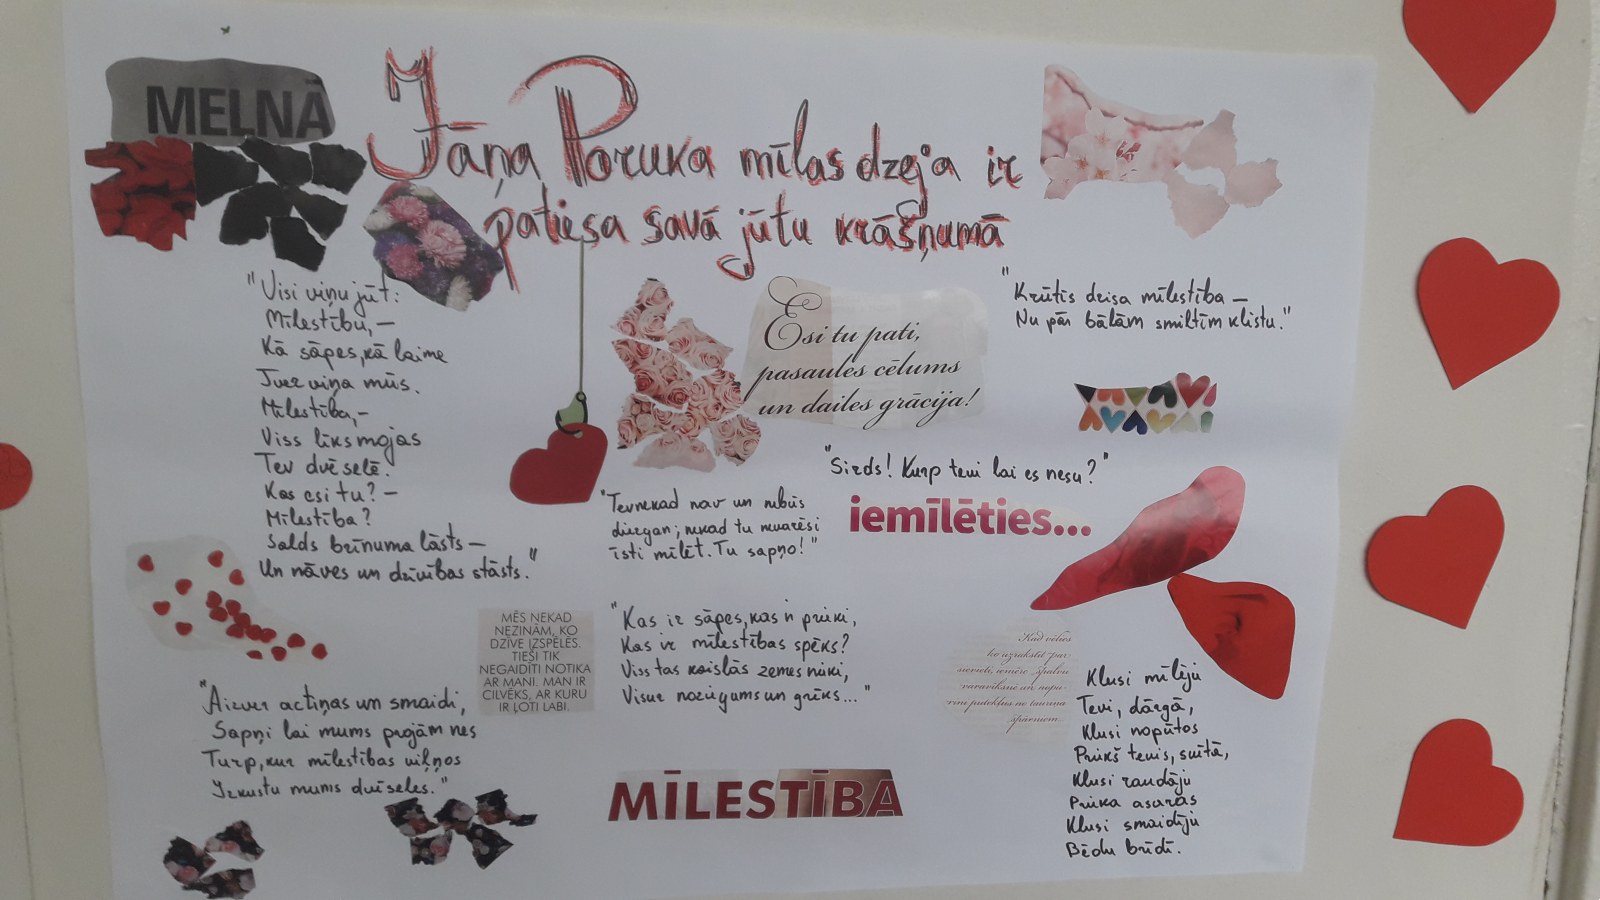 MELNĀ
Jāņa Poruka mīlas dzeja ir
patiesa savā jūtu krāšņumā
"Visi viņu jūt:
Mīlestību,—
Kā sāpes, kā laime
Tver viņa mūs.
Mīlestība,—
Viss līksmojas
Tev dvēselē.
Kas esi tu? —
Mīlestība?
Salds brīnuma lāsts —
Un nāves un dzīvības stāsts."
"Aizver actiņas un smaidi,
Sapņi lai mums projām nes
Turp, kur mīlestības viļņos
Izkustu mums dvēseles."
Esi tu pati,
pasaules cēlums
un dailes grācija!
"Tevnekad nav un nebūs
diezgan; nekad tu nevarēsi
īsti mīlēt. Tu sapņo!"
MĒS NEKAD
NEZINĀM, KO
DZĪVE IZSPĒLĒS.
TIEŠI TIK
NEGAIDĪTI NOTIKA
AR MANI. MAN IR
CILVĒKS, AR KURU
IR ĻOTI LABI.
"Kas ir sāpes, kas ir prieki,
Kas ir mīlestības spēks?
Viss tas kaislās zemes nieki,
Visur noziegums un grēks..."
MĪLESTĪBA
"Krūtīs dzisa mīlestība —
Nu pār bālām smiltīm klīstu."
"Sirds! Kurp tevi lai es nesu?"
iemīlēties...
Kad vēlies
ko uzrakstīt par
sievieti, iemērc spalvu
varavīksnē un
putekļus no tauriņa
spārniem.
Klusi mīlēju
Tevi, dārgā,
Klusi nopūtos
Priekš tevis, svētā,
Klusi raudāju
Prieka asaras
Klusi smaidīju
Bēdu brīdī.